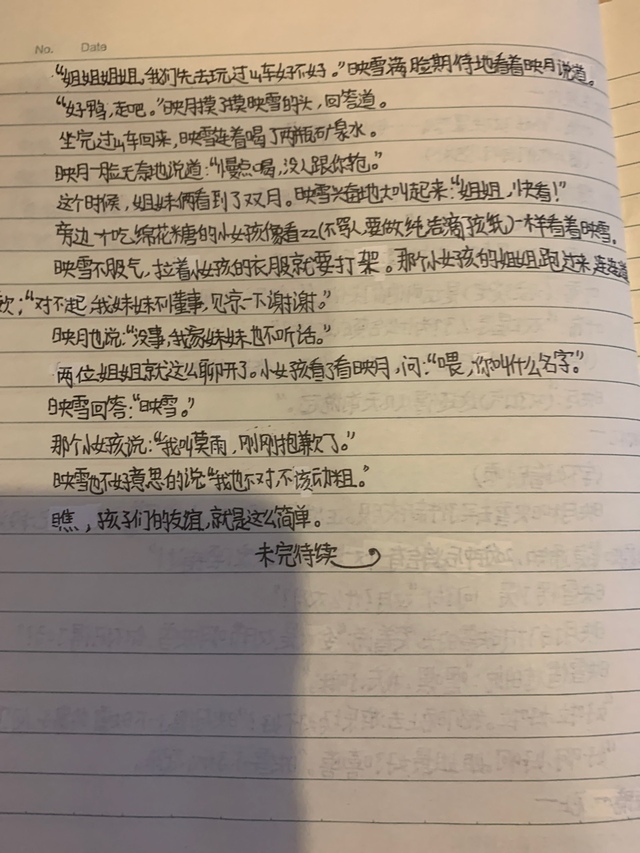 No. Date
“姐姐姐姐,我们先去玩过山车好不好。”映雪满脸期待地看着映月说道。
“好鸭,走吧。”映月摸了摸映雪的头,回答道。
坐完过山车回来,映雪连着喝了两瓶矿泉水。
映月一脸无奈地说道:“慢点喝,没人跟你抢。”
这个时候,姐妹俩看到了双月。映雪兴奋地大叫起来:“姐姐,快看!”
旁边一个吃绵花糖的小女孩像看zz(不骂人要做纯洁滴孩纸)一样看着映雪。
映雪不服气,拉着小女孩的衣服就要打架。那个小女孩的姐姐跑过来,连连道
歉:“对不起,我妹妹不懂事,见凉一下谢谢。”
映月也说:“没事,我家妹妹也不听话。”
两位姐姐就这么聊开了。小女孩看了看映月,问:“喂,你叫什么名字。”
映雪回答:“映雪。”
那个小女孩说:“我叫莫雨,刚刚抱歉了。”
映雪也不好意思的说“我也不对,不该动粗。”
瞧,孩子们的友谊,就是这么简单。
未完待续